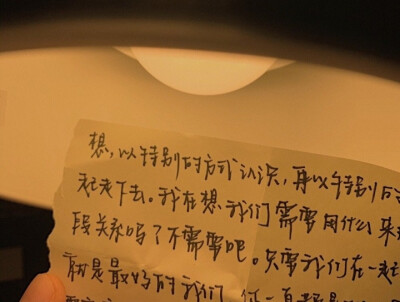 想，以特别的方式认识，再以特别的
走下去。我在想我们需要用什么来
段关系吗？不需要吧。只要我们在一起
就是最好的我们